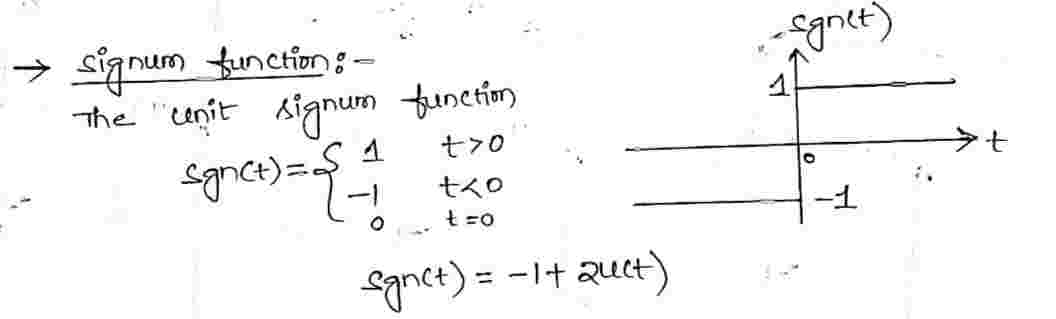 → signum function:-
The unit signum function
sgn(t) = { 1 t>0
-1 t<0
0 t=0
sgn(t) = -1+2u(t)
sgn(t)
1
0
t
-1